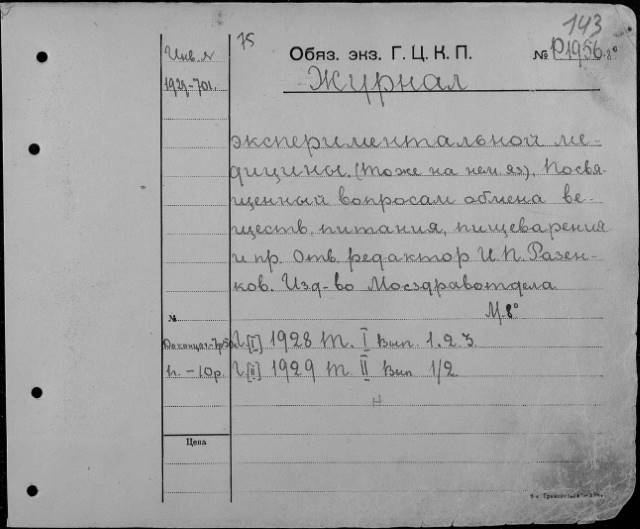 143
Инв. №
75
Обяз. экз. Г. Ц. К. П.
№ Р1956.8°
1929-701.
Журнал
экспериментальной ме-
дицины. (Тоже на нем. яз). Посвя-
щенный вопросам обмена ве-
ществ, питания, пищеварения
и пр. Отв. редактор И. П. Разен-
ков. Изд-во Мосздравотдела
М. 8°
№
Г [I] 1928 т. I вып. 1. 2 3.
п. - 10 р.
Г [II] 1929 т. II вып 1/2
Цена